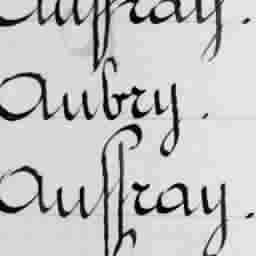 Auffray.
Aubry.
Auffray.